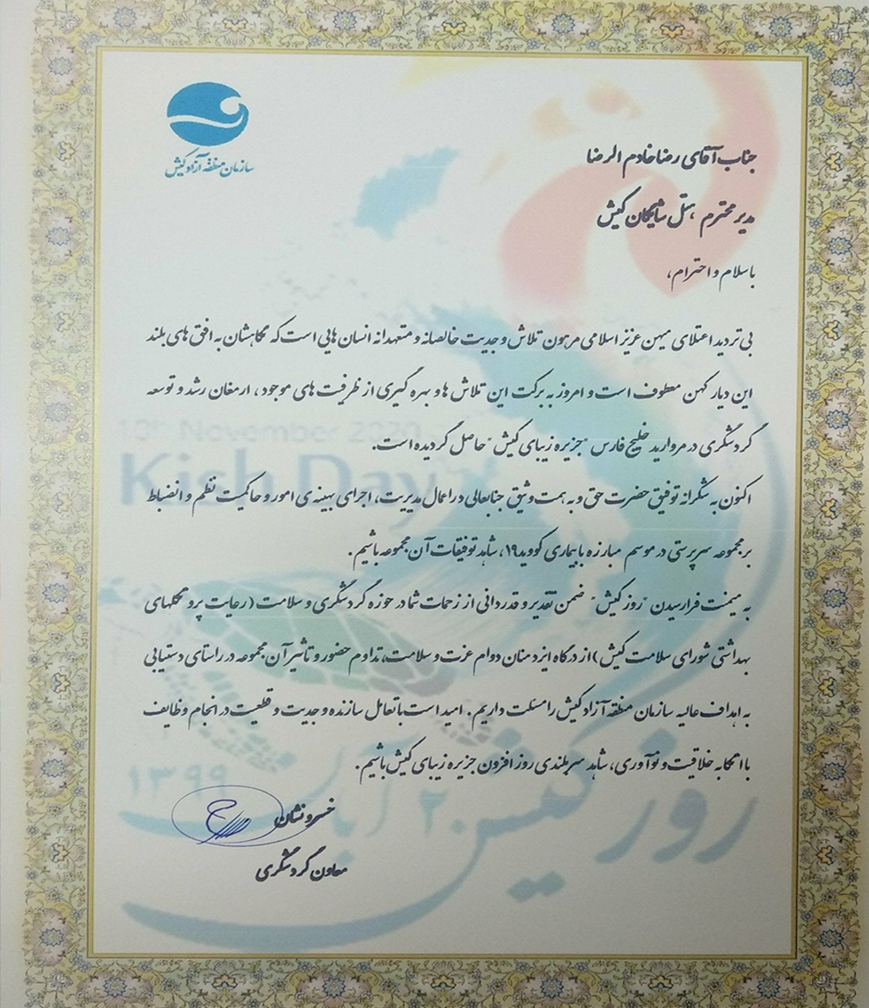 سازمان منطقه آزاد کیش
جناب آقای رضا خادم الرضا
مدیر محترم هتل شایگان کیش
با سلام و احترام،
بی تردید اعتلای میهن عزیز اسلامی مرهون تلاش و جدیت خالصانه و متعهدانه انسان هایی است که نگاهشان به افق های بلند
این دیار کهن معطوف است و امروز به برکت این تلاش ها و بهره گیری از ظرفیت های موجود، ارمغان رشد و توسعه
گردشگری در مروارید خلیج فارس "جزیره زیبای کیش" حاصل گردیده است.
اکنون به شکرانه توفیق حضرت حق و به همت وثیق جنابعالی در اعمال مدیریت، اجرای بهینه ی امور و حاکمیت نظم و انضباط
بر مجموعه سرپرستی در موسم مبارزه با بیماری کووید ۱۹، شاهد توفیقات آن مجموعه باشیم.
به میمنت فرارسیدن "روز کیش" ضمن تقدیر و قدردانی از زحمات شما در حوزه گردشگری و سلامت (رعایت پروتکلهای
بهداشتی شورای سلامت کیش) از درگاه ایزد منان دوام عزت و سلامت، تداوم حضور و تاثیر آن مجموعه در راستای دستیابی
به اهداف عالیه سازمان منطقه آزاد کیش را مسئلت داریم. امید است با تعامل سازنده و جدیت و قطعیت در انجام وظایف
با اتکا به خلاقیت و نوآوری، شاهد سربلندی روز افزون جزیره زیبای کیش باشیم.
خسرونشان
معاون گردشگری
10th November 2020
Kish Day
روز کیش
۲۰ آبان
۱۳۹۹